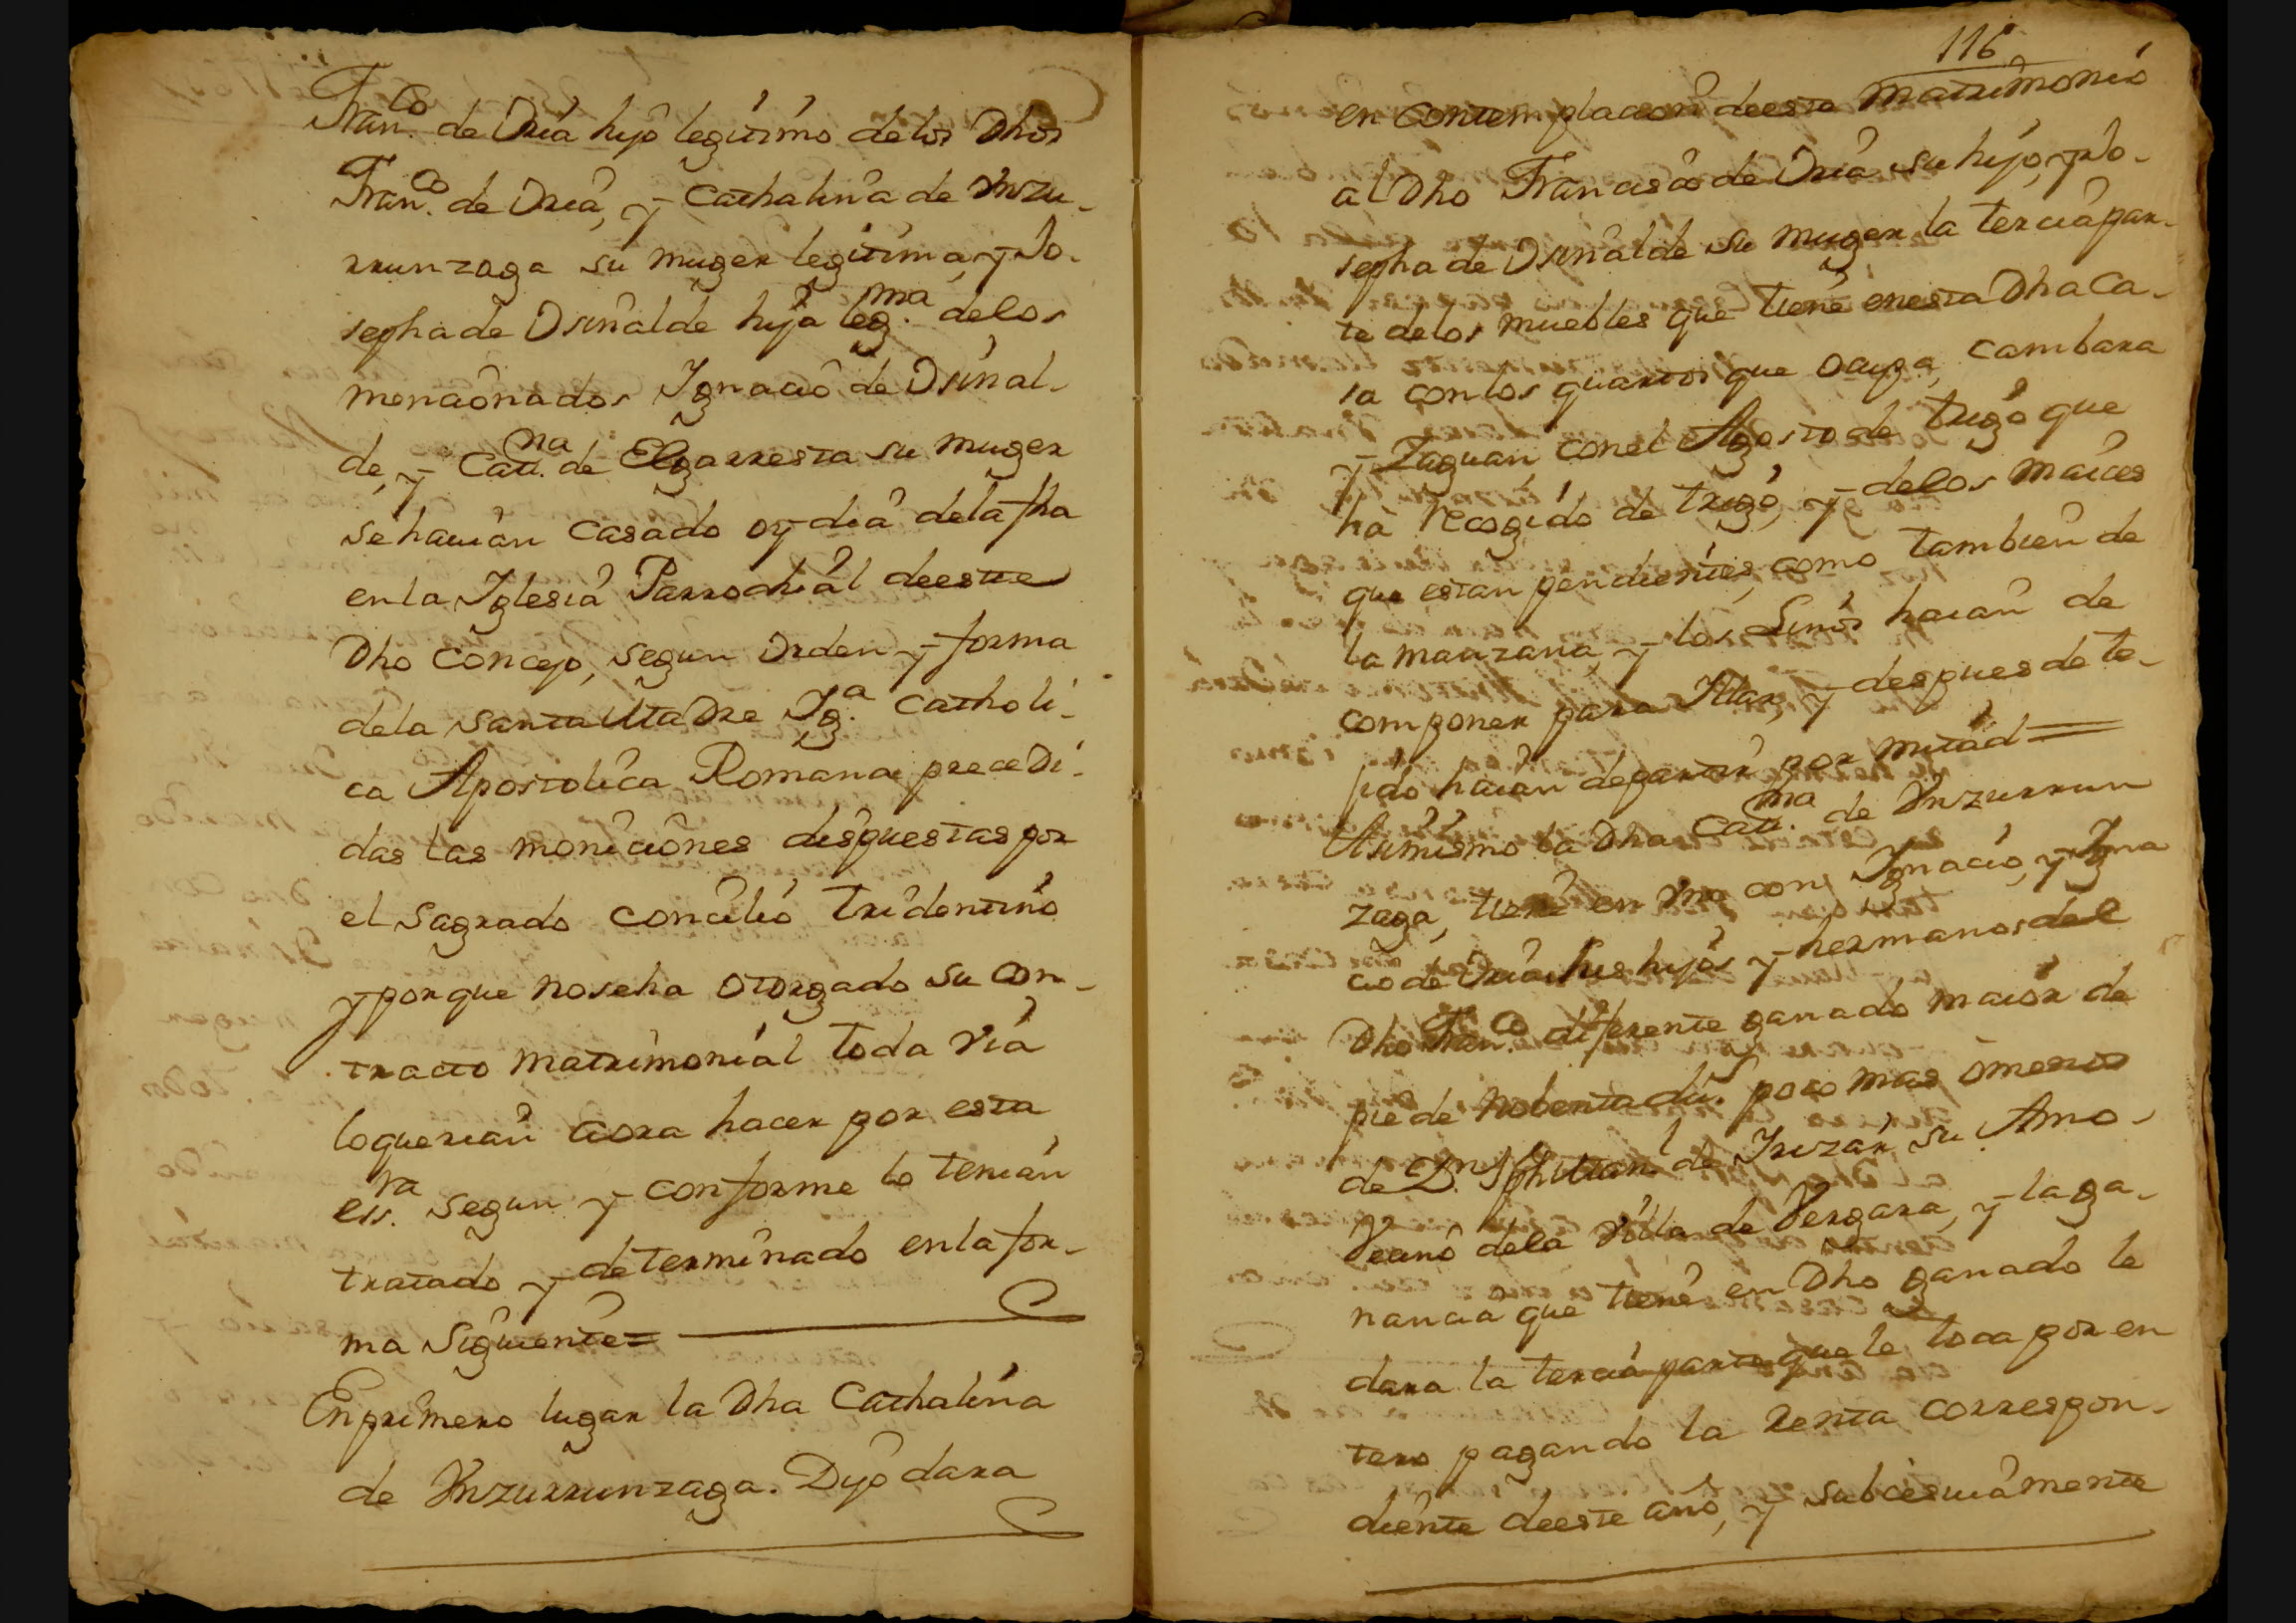 Fran.co de Oria hijo legitimo delos Dhos
Fran.co de Oria, y Cathalina de Ynzu-
rrunzaga su muger legitima, y Jo-
sepha de Osinalde hija leg.ma delos
mencionados Ignacio de Osinal-
de, y Cat.na de Elgarresta su muger
se hauian Casado oy dia dela fha
en la Iglesia Parrochial deeste
Dho Concejo, segun orden y forma
dela santa Madre Ig.a Catholi-
ca Apostolica Romana precedi-
das las moniciones dispuestas por
el Sagrado Concilio Tridentino
y porque nose ha otorgado su con-
tracto matrimonial toda via
lo querian aora hacer por esta
ess.ra segun y conforme lo tenian
tratado y determinado en la for-
ma siguiente=
En primero lugar la Dha Cathalina
de Ynzurrunzaga. Dijo dara
116
en contemplacion deeste matrimonio
al Dho Francisco de Oria su hijo, y Jo-
sepha de Osinalde su muger la tercia par-
te delos muebles que tiene enesta Dha Ca-
sa con los quartos que ocupa, cambara
y Zaguan con el Agosto de trigo que
hà recogido de trigo, y delos maices
que estan pendientes, como tambien de
la manzana, y los Linos haian de
componer para Ilar, y despues de te-
jido haian de partir por mitad =
Asimismo la Dha Cat.na de Ynzurrun
zaga, tiene en Vno con Ignacio, y Igna
cio de Oria hijos y hermanos del
Dho Fran.co diferente ganado maior de
pie de nobenta du.s poco mas ô menos
de D.n de Irizar su Amo
Vecino dela Villa de Vergara, y la ga-
nancia que tiene en Dho ganado le
dara la tercia parte que le toca por en
tero pagando la Renta correspon-
diente deeste año, y subcesiuamente